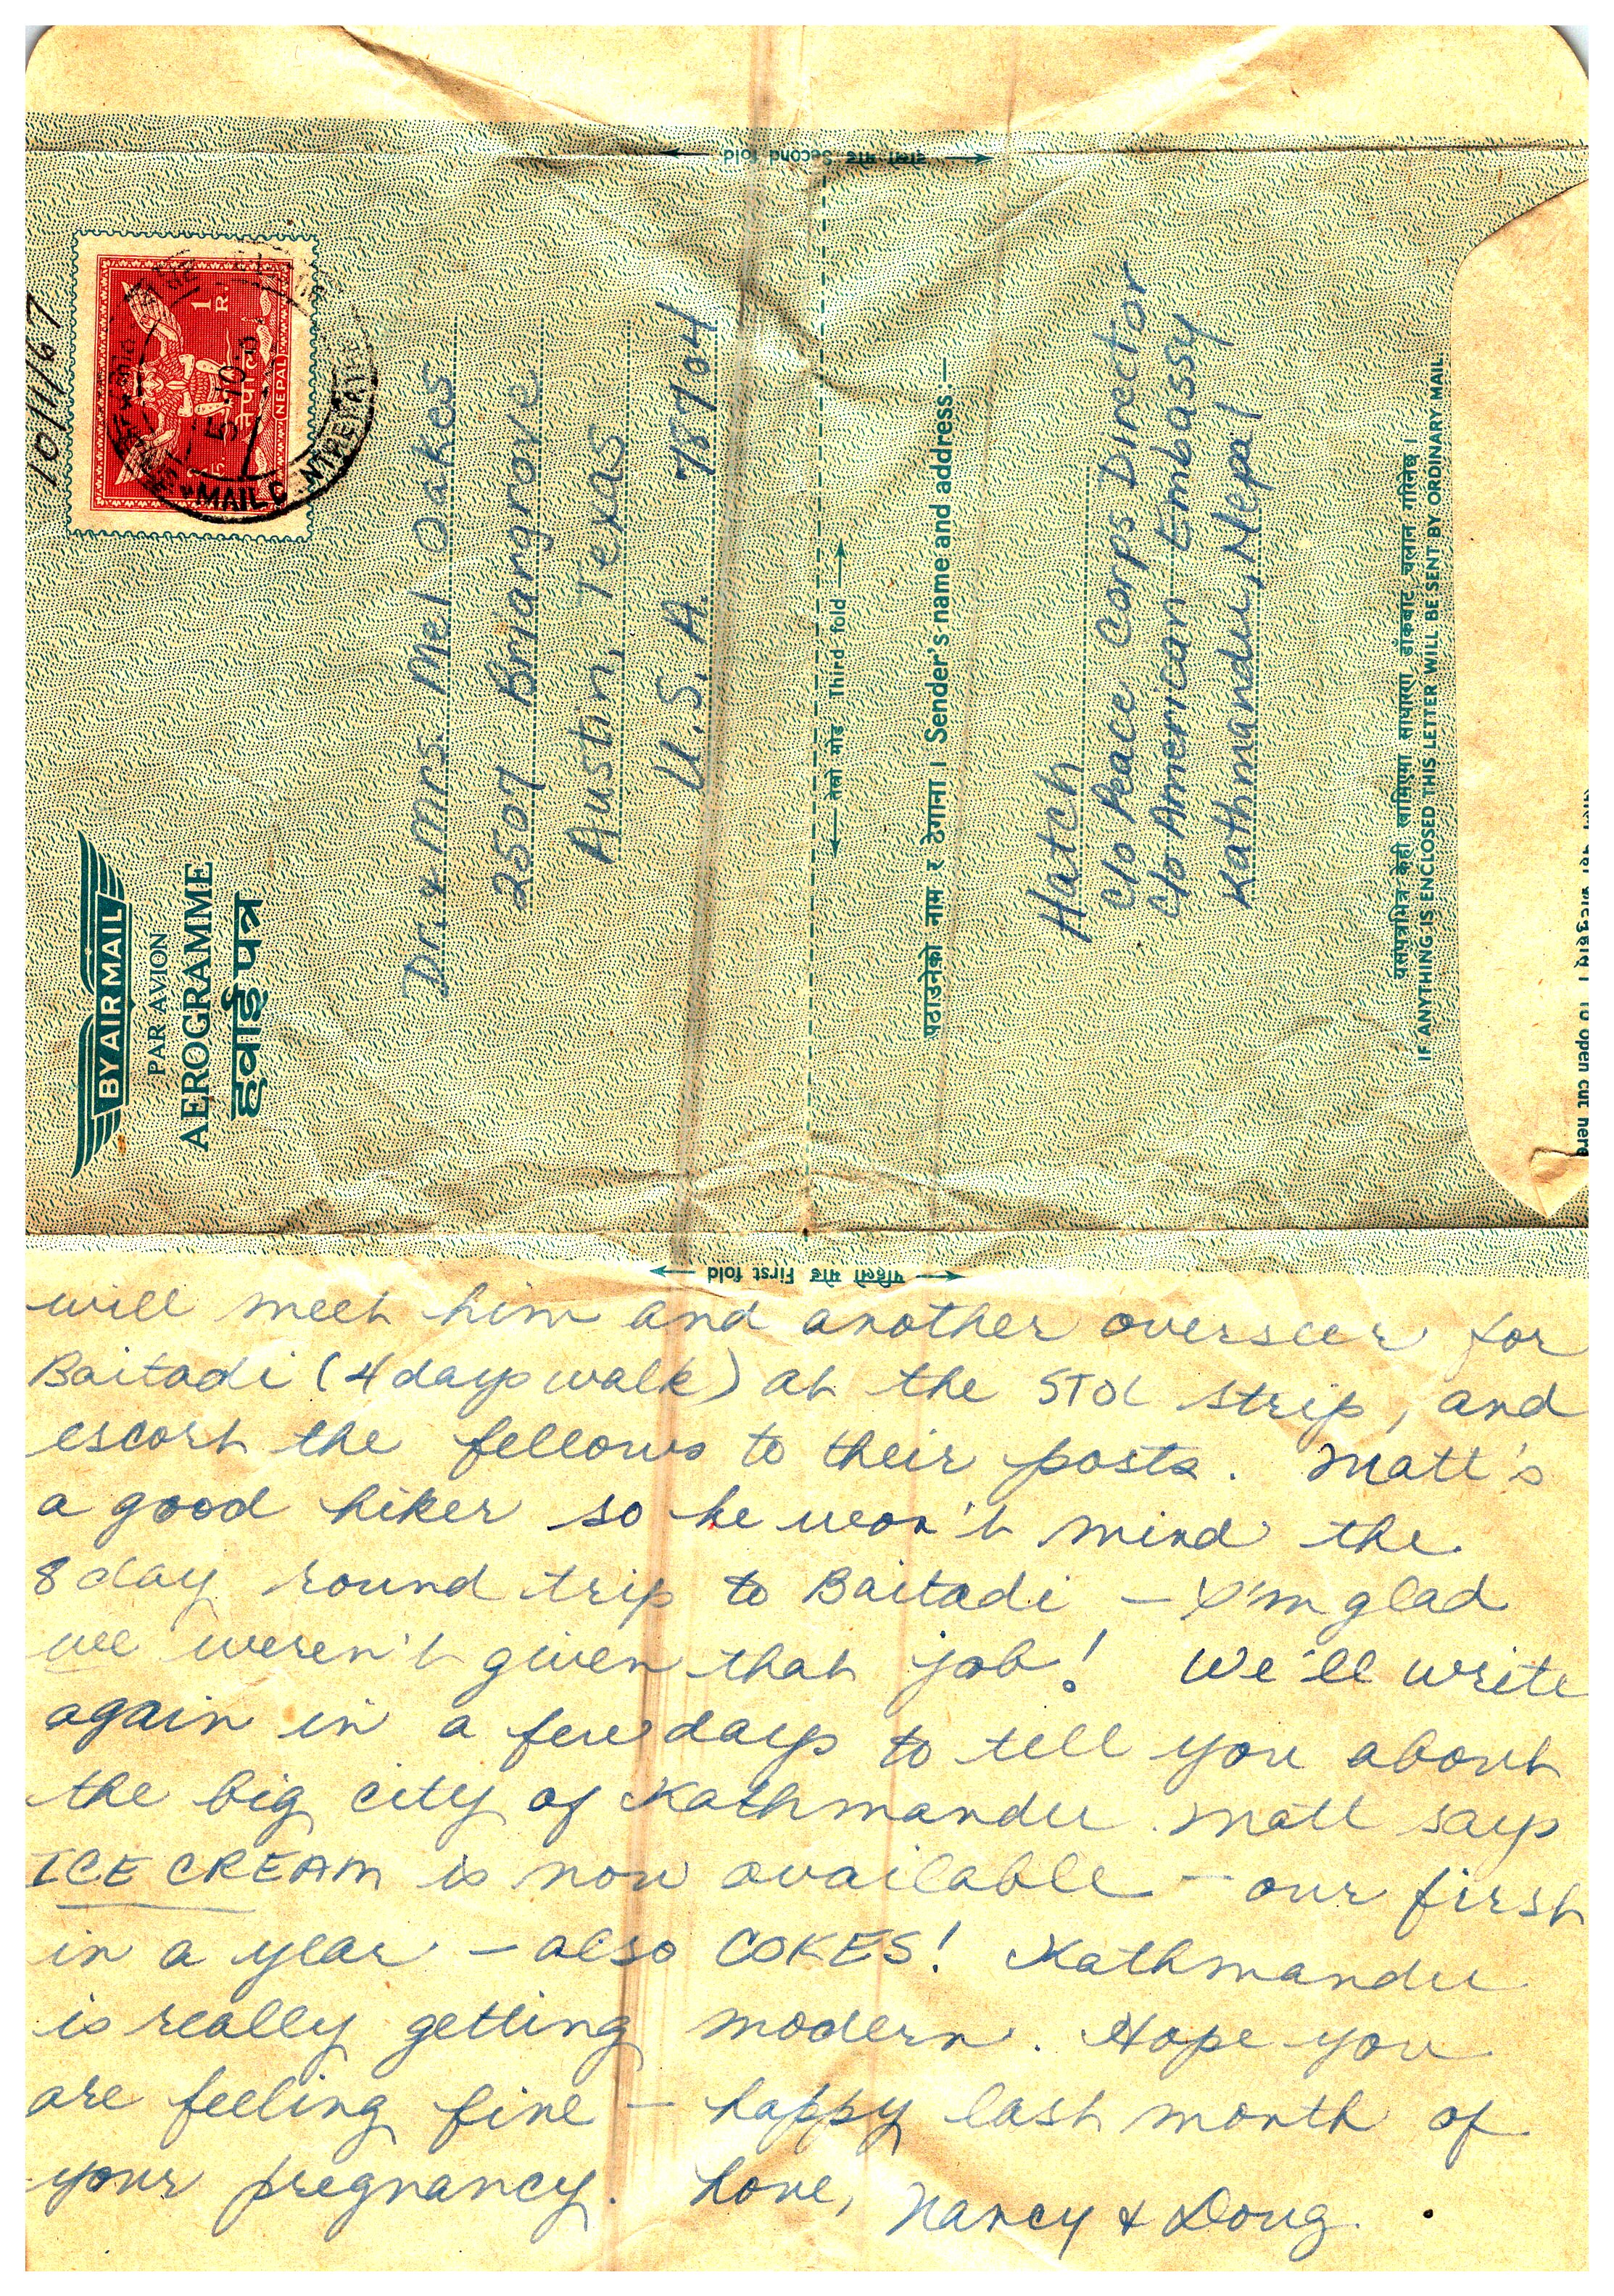 दोस्रो मोड Second fold
10/11/67
1 R.
नेपाल
NEPAL
5 10
MAIL C NTRE
BY AIR MAIL
PAR AVION
AEROGRAMME
हवाई पत्र
Dr. & Mrs. Mel Oakes
2507 Briargrove
Austin, Texas
U.S.A. 78704
तेस्रो मोड Third fold
पठाउनेको नाम र ठेगाना । Sender's name and address:—
Hatch
c/o Peace Corps Director
c/o American Embassy
Kathmandu, Nepal
यसपत्रभित्र केही लागिएमा साधारण डाँकबाट चलान गरिनेछ ।
IF ANYTHING IS ENCLOSED THIS LETTER WILL BE SENT BY ORDINARY MAIL.
To open cut here
पहिलो मोड First fold
will meet him and another overseer for
Baitadi (4 days walk) at the STOL strip, and
escort the fellows to their posts. Matt's
a good hiker so he won't mind the
8 day round trip to Baitadi – I'm glad
we weren't given that job! We'll write
again in a few days to tell you about
the big city of Kathmandu. Matt says
ICE CREAM is now available – our first
in a year – also COKES! Kathmandu
is really getting modern. Hope you
are feeling fine – happy last month of
your pregnancy. Love, Nancy & Doug.